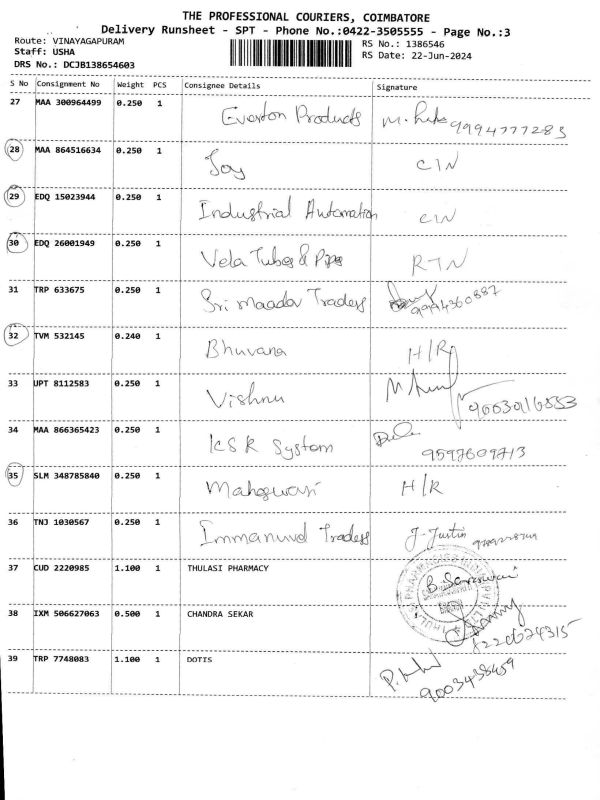 THE PROFESSIONAL COURIERS, COIMBATORE
Delivery Runsheet - SPT - Phone No.:0422-3505555 - Page No.:3
Route: VINAYAGAPURAM
Staff: USHA
DRS No.: DCJB138654603
RS No.: 1386546
RS Date: 22-Jun-2024
S No Consignment No Weight PCS Consignee Details Signature
27 MAA 300964499 0.250 1 Everton Products 9994777283
28 MAA 864516634 0.250 1 Joy CIN
29 EDQ 15023944 0.250 1 Industrial Automation CIN
30 EDQ 26001949 0.250 1 Vela Tubes & Pipes RTN
31 TRP 633675 0.250 1 Sri Maadav Traders 9994360887
32 TVM 532145 0.240 1 Bhuvana H/R
33 UPT 8112583 0.250 1 Vishnu
34 MAA 866365423 0.250 1 KSR System 9597609713
35 SLM 348785840 0.250 1 Maheswari H/R
36 TNJ 1030567 0.250 1 Immanuvel Traders J. Justin
37 CUD 2220985 1.100 1 THULASI PHARMACY
38 IXM 506627063 0.500 1 CHANDRA SEKAR
39 TRP 7748083 1.100 1 DOTIS 9003438459